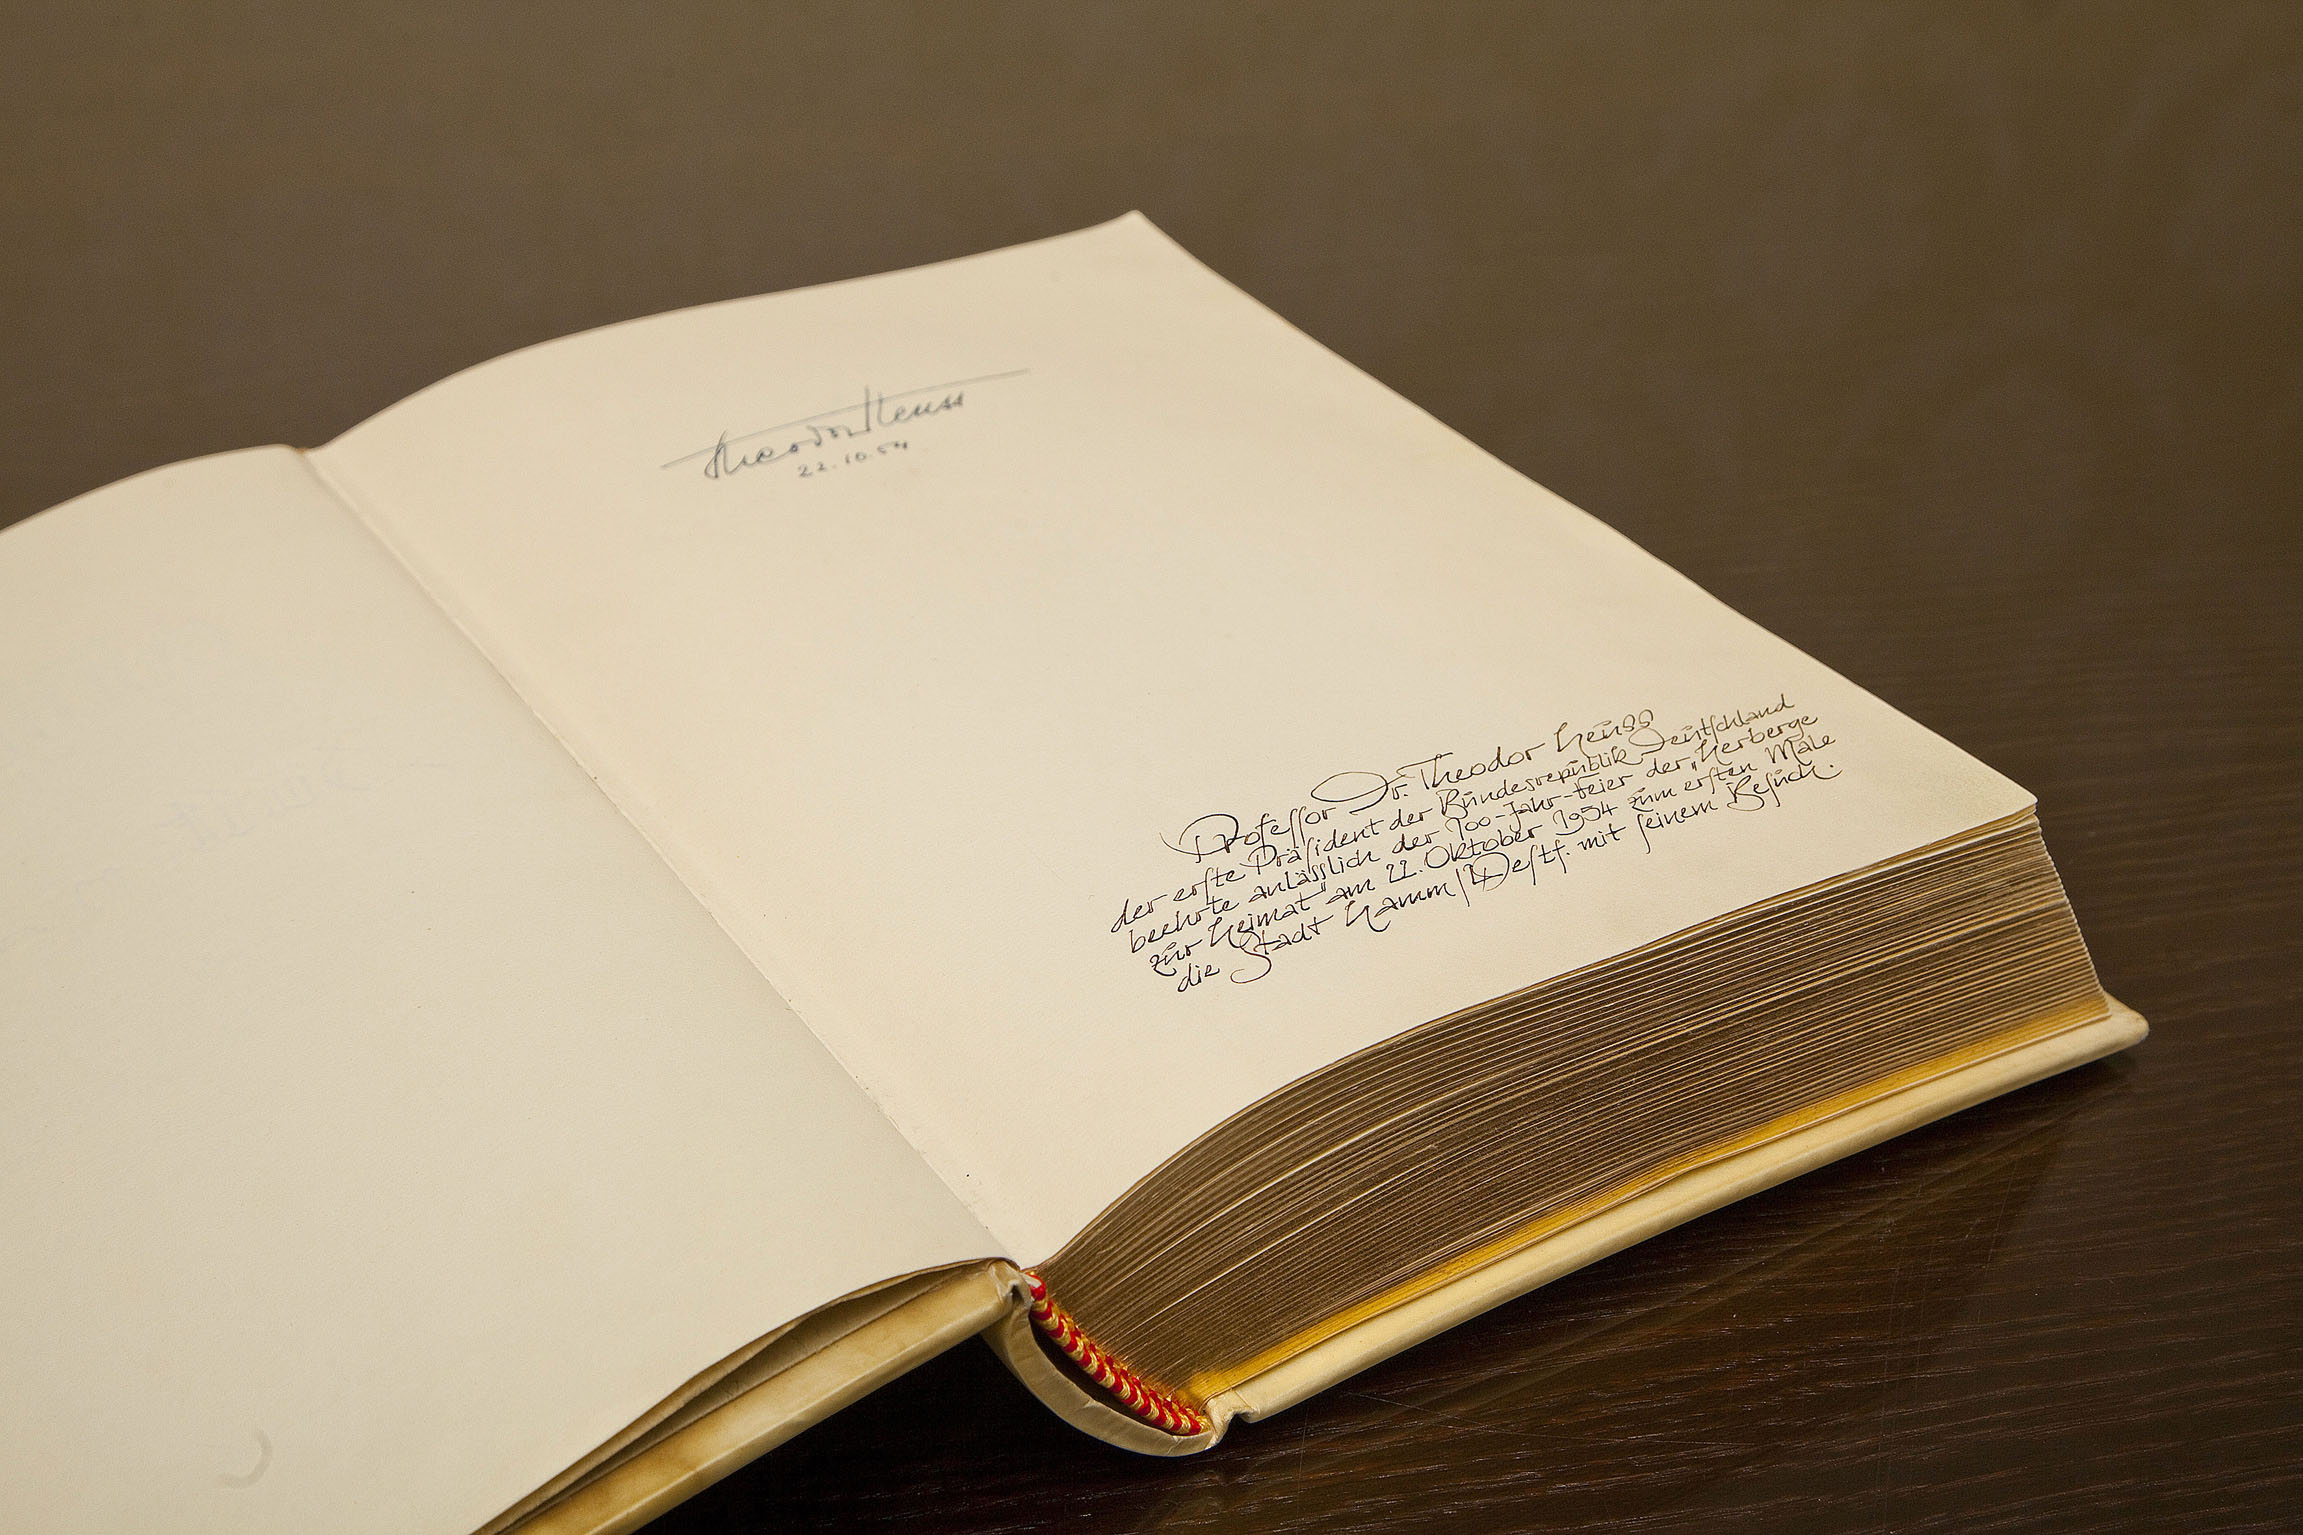 Theodor Heuss
22.10.54
Professor Dr. Theodor Heuss
der erste Präsident der Bundesrepublik Deutschland
beehrte anlässlich der 100-Jahr-Feier der „Herberge
zur Heimat" am 22. Oktober 1954 zum ersten Male
die Stadt Hamm/Westf. mit seinem Besuch.